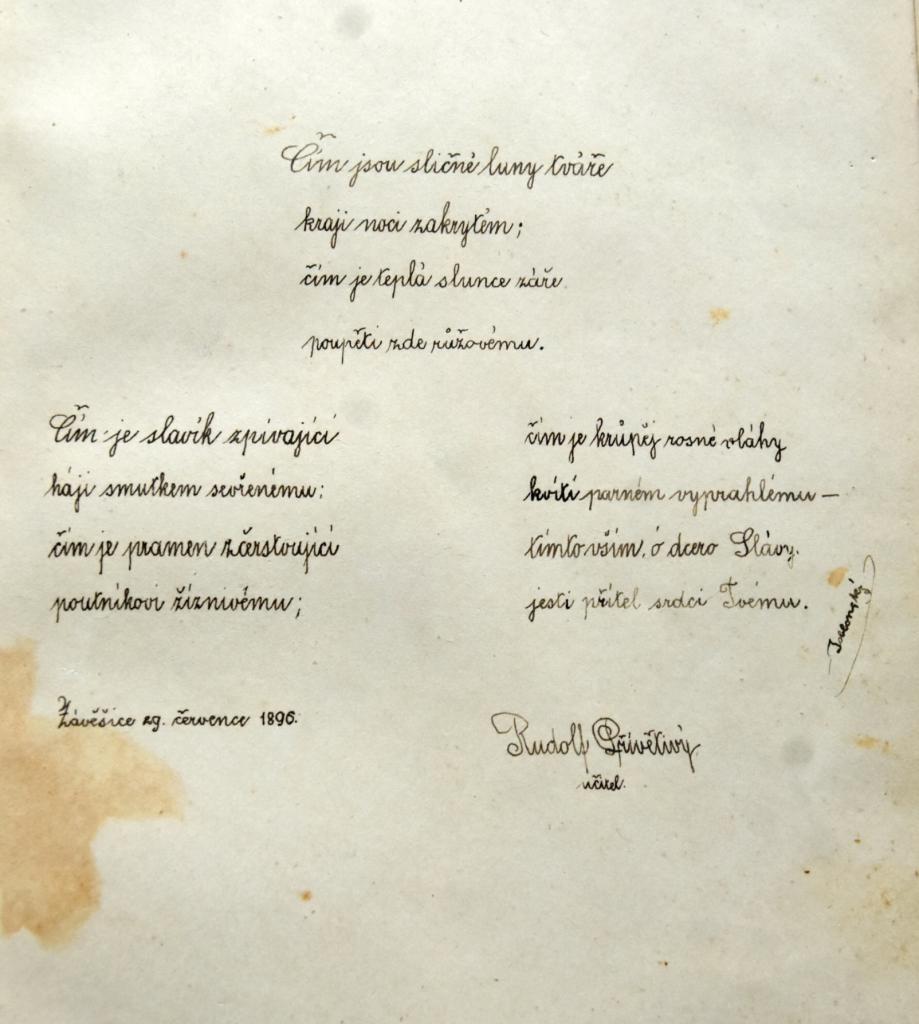 Čím jsou sličné luny tváře
kraji noci zakrytém;
čím je teplá slunce záře
poupěti zde růžovému.
Čím je slavík zpívající
háji smutkem sevřenému:
čím je pramen zčerstvující
poutníkovi žíznivému;
čím je krůpěj rosné vláhy
kvítí parném vyprahlému –
tímto vším, ó dcero Slávy.
jesti přítel srdci Tvému.
Jablonský
Závěšice 29. července 1896.
Rudolf Přívětivý
učitel.